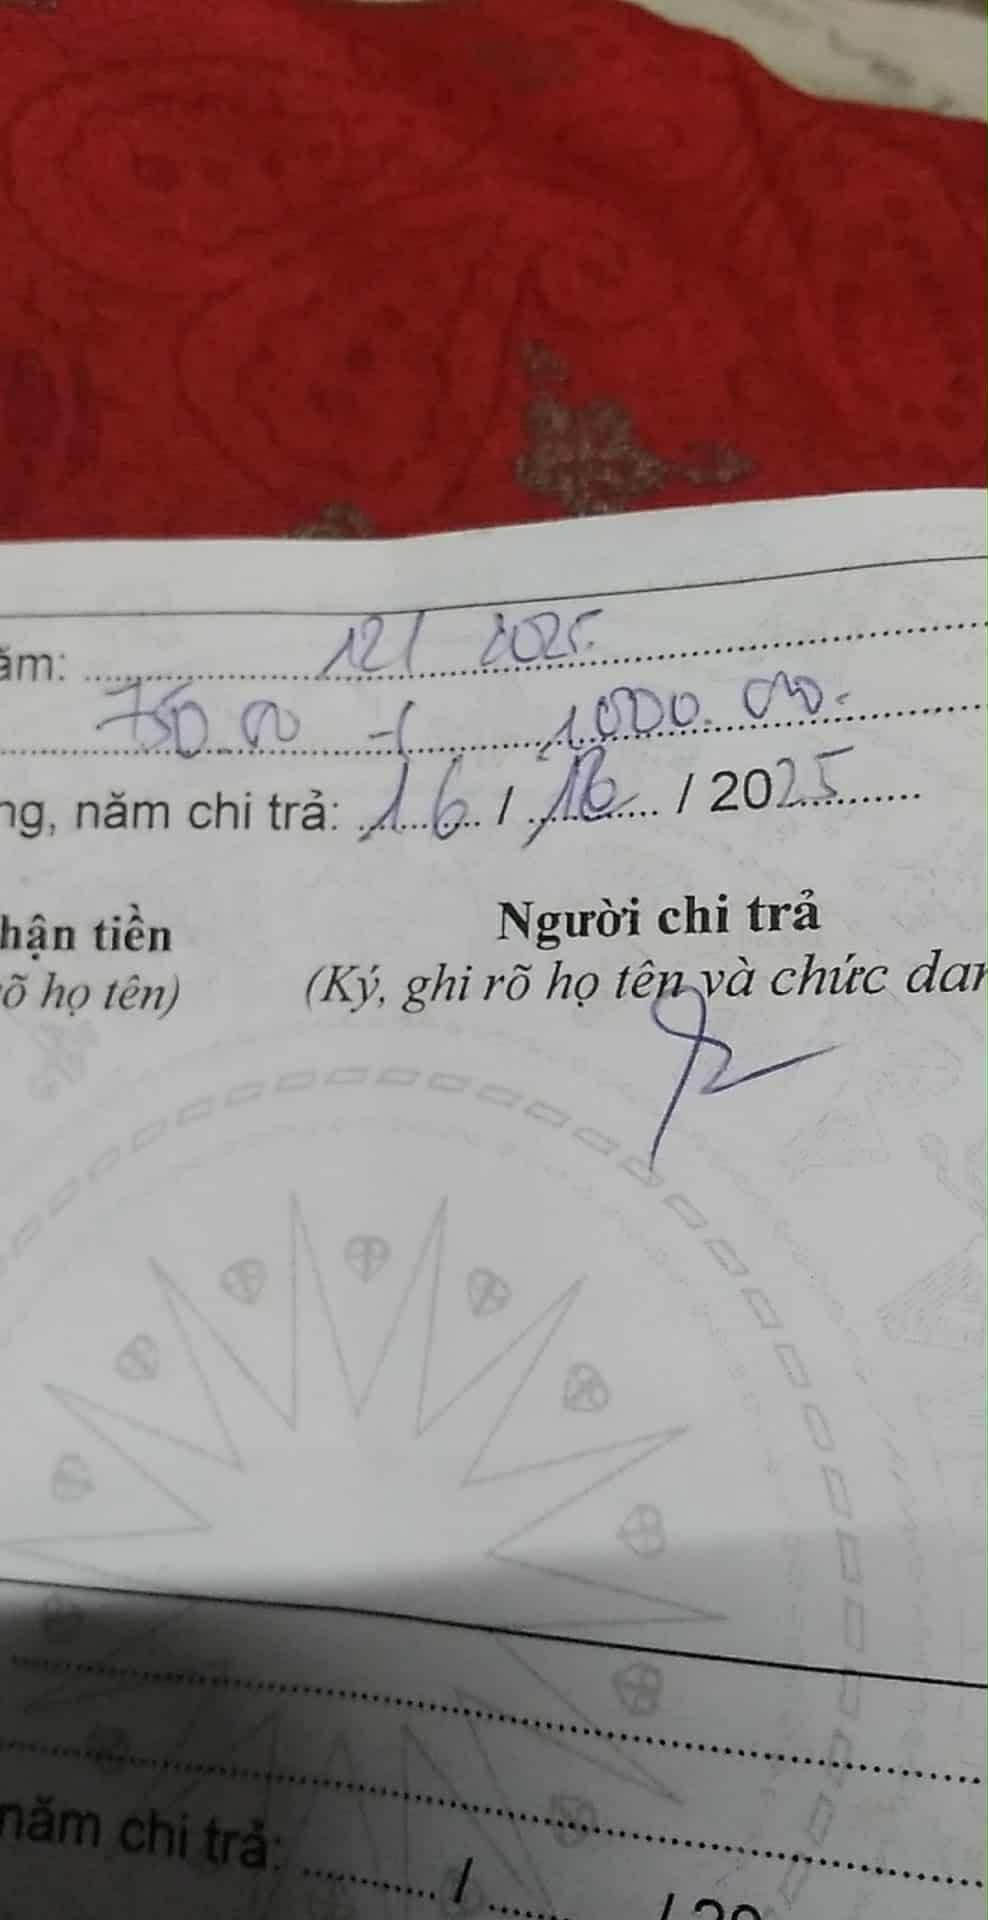 ăm: 12/ 2025.
750.000 + 1000.000.
ng, năm chi trả: 16 / / 2025
hận tiền Người chi trả
õ họ tên) (Ký, ghi rõ họ tên và chức dan
năm chi trả: / / 20